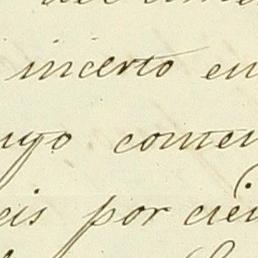 incerto en
uyo conten
eis por cien